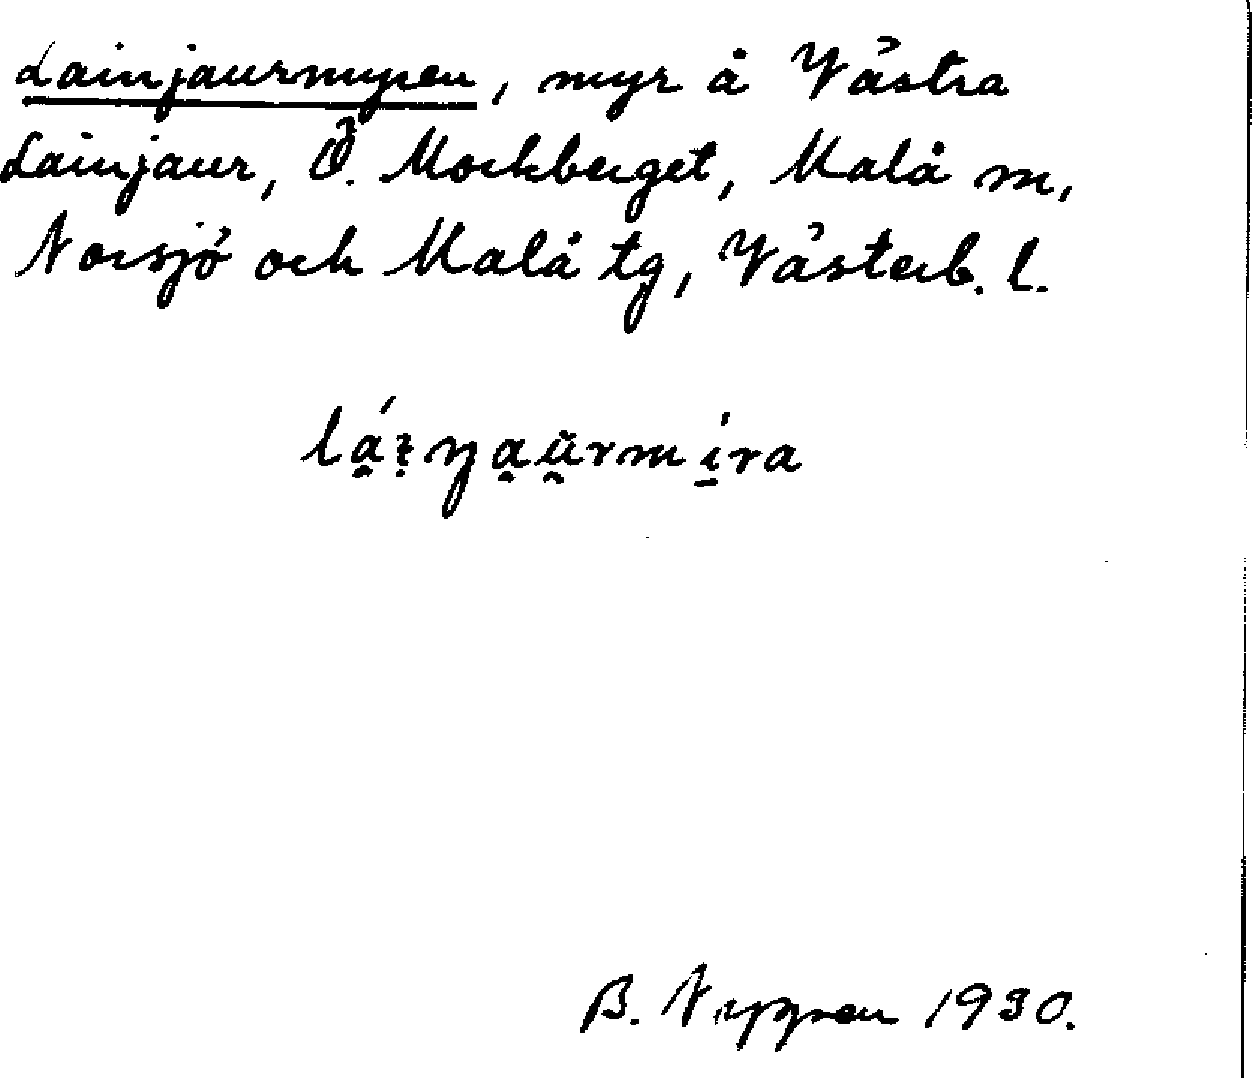 Lainjaurmyren, myr å Västra
Lainjaur, Ö. Mockberget, Malå m,
Norsjö och Malå tg, Västerb. l.
B. Nygren 1930.